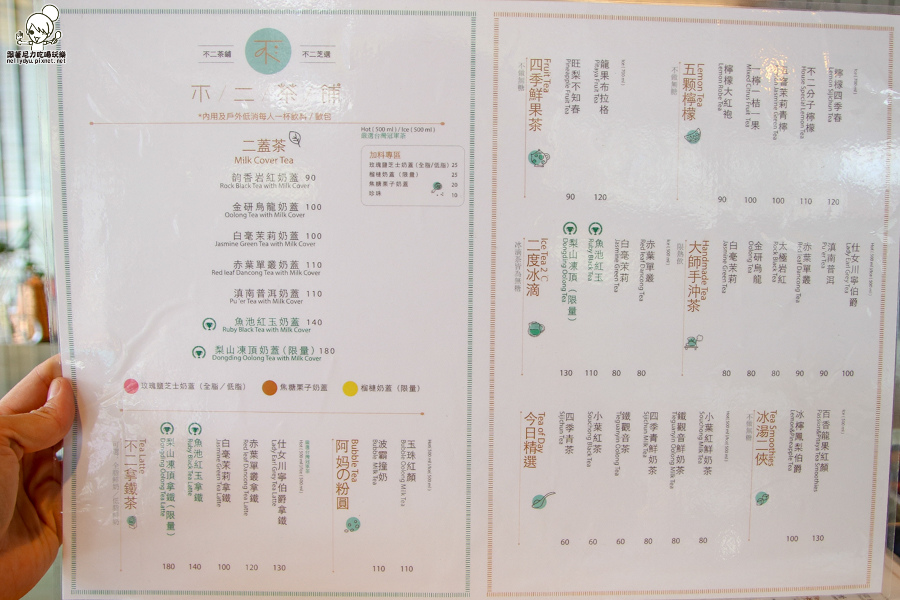 跟著尼力吃喝玩樂
nellydyu.pixnet.net
不二茶舖
不二芝選
不二茶舖
*內用及戶外低消每人一杯飲料/麵包
二蓋茶
Milk Cover Tea
Hot ( 500 ml ) / Ice ( 500 ml )
嚴選台灣冠軍茶
加料專區
玫瑰鹽芝士奶蓋(全脂/低脂) 25
榴槤奶蓋(限量) 25
焦糖栗子奶蓋 20
珍珠 10
韵香岩紅奶蓋 90
Rock Black Tea with Milk Cover
金研烏龍奶蓋 100
Oolong Tea with Milk Cover
白毫茉莉奶蓋 100
Jasmine Green Tea with Milk Cover
赤葉單叢奶蓋 110
Red leaf Dancong Tea with Milk Cover
滇南普洱奶蓋 110
Pu'er Tea with Milk Cover
魚池紅玉奶蓋 140
Ruby Black Tea with Milk Cover
梨山凍頂奶蓋(限量) 180
Dongding Oolong Tea with Milk Cover
玫瑰鹽芝士奶蓋(全脂/低脂)
焦糖栗子奶蓋
榴槤奶蓋(限量)
阿媽の粉圓
Bubble Tea
玉珠紅顏
Bubble Oolong Milk Tea
110
波霸撞奶
Bubble Milk Tea
110
不二拿鐵茶
Tea Latte
仕女川寧伯爵拿鐵
Lady Earl Grey Tea Latte
130
赤葉單叢拿鐵
Red leaf Dancong Tea Latte
120
白毫茉莉拿鐵
Jasmine Green Tea Latte
100
魚池紅玉拿鐵
Ruby Black Tea Latte
140
梨山凍頂拿鐵(限量)
Dongding Oolong Tea Latte
180
五顆檸檬
Lemon Tea
不做無糖
檸檬四季春
Lemon Sijichun Tea
120
不二分子檸檬
Mosaic Special Lemon Tea
110
茉莉青檸
100
一檸二桔一果
Mixed Citrus Fruit Tea
100
檸檬大紅袍
Lemon Robe Tea
90
四季鮮果茶
Fruit Tea
不做無糖
龍果布拉格
Pitaya Fruit Tea
120
旺梨不知春
Pineapple Fruit Tea
90
大師手沖茶
Handmade Tea
限熱飲
仕女川寧伯爵
Lady Earl Grey Tea
100
滇南普洱
Pu'er Tea
90
赤葉單叢
Red leaf Dancong Tea
90
太極岩紅
Rock Black Tea
80
金研烏龍
Oolong Tea
80
白毫茉莉
Jasmine Green Tea
80
二度冰滴
Ice Tea 2°C
冰滴茶皆為無糖
赤葉單叢
Red leaf Dancong Tea
80
白毫茉莉
Jasmine Green Tea
80
魚池紅玉
Ruby Black Tea
110
梨山凍頂(限量)
Dongding Oolong Tea
130
冰湯二俠
Tea Smoothies
不做無糖
百香龍果紅顏
Passion&Pitaya Tea Smoothies
130
冰檸鳳梨伯爵
Lemon&Pineapple Tea
100
今日精選
Tea of Day
小葉紅鮮奶茶
Souchong Milk Tea
80
鐵觀音鮮奶茶
Tieguanyin Oolong Milk Tea
80
四季青鮮奶茶
Sijichun Milk Tea
80
鐵觀音茶
Tieguanyin Oolong Tea
60
小葉紅茶
Souchong Black Tea
60
四季青茶
Sijichun Tea
60